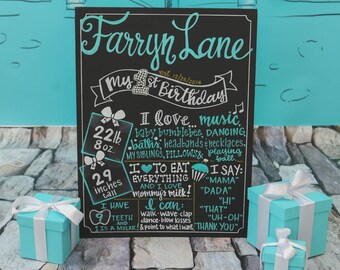 Farryn Lane
est. 12/29/2014
My 1st Birthday
I love... music,
baby bumblebes, DANCING,
baths, headbands & necklaces,
MY SIBLINGS, PILLOWS & playing ball
22lb
8oz
29
inches
tall
I ♥ TO EAT
EVERYTHING
AND I LOVE
mommy's milk!
I SAY:
"MAMA"
"DADA"
"HI"
"THAT"
"UH-OH"
"THANK YOU"
I HAVE
9 TEETH
AND 1 IS A MOLAR!
I can:
walk-wave-clap
dance-blow kisses
& point to what I want